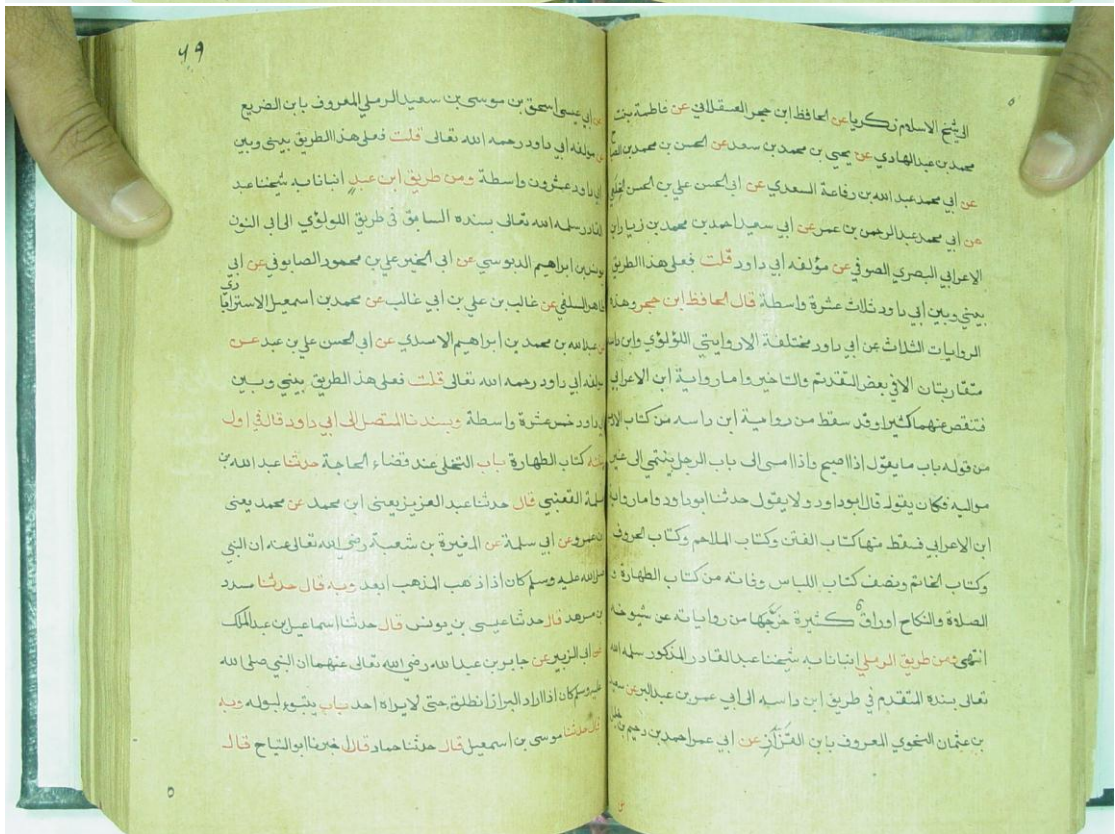 الى شيخ الاسلام زكريا عن الحافظ ابن حجر العسقلاني عن فاطمة بنت
محمد بن عبد الهادي عن يحيى بن محمد بن سعد عن الحسن بن محمد بن
عن ابي محمد عبد الله بن رفاعة السعدي عن ابي الحسن علي بن الحسن الخلعي
عن ابي محمد عبد الرحمن بن عمر عن ابي سعيد احمد بن محمد بن زياد ابن
الاعرابي البصري الصوفي عن مؤلفه ابي داود قلت فعلى هذا الطريق
بيني وبين ابي داود ثلاث عشرة واسطة قال الحافظ ابن حجر وهذه
الروايات الثلاث عن ابي داود مختلفة الا روايتي اللؤلؤي وابن داسه
متقاربتان الا في بعض التقديم والتاخير واما رواية ابن الاعرابي
فتنقص عنهما كثيرا وقد سقط من رواية ابن داسه من كتاب الادب
من قوله باب ما يقول اذا اصبح واذا امسى الى باب الرجل ينتمي الى غير
مواليه فكان يقول قال ابوداود ولا يقول حدثنا ابوداود واما رواية
ابن الاعرابي فسقط منها كتاب الفتن وكتاب الملاحم وكتاب الحروف
وكتاب الخاتم ونصف كتاب اللباس وفاته من كتاب الطهارة و
الصلاة والنكاح اوراق كثيرة خرّجها من رواياته عن شيوخه
انتهى ومن طريق الرملي انبانا به شيخنا عبد القادر المذكور سلمه الله
تعالى بسنده المتقدم في طريق ابن داسه الى ابي عمر بن عبد البر عن سعيد
بن عثمان النحوي المعروف بابن القزّاز عن ابي عمر احمد بن دحيم بن خليل
٤٩
عن ابي عيسى اسحق بن موسى بن سعيد الرملي المعروف بابن الضريع
عن مؤلفه ابي داود رحمه الله تعالى قلت فعلى هذا الطريق بيني وبين
ابي داود عشرون واسطة ومن طريق ابن عبد انبانا به شيخنا عبد
القادر سلمه الله تعالى بسنده السابق في طريق اللولؤي الى ابي النون
يونس بن ابراهيم الدبوسي عن ابي الخير علي بن محمود الصابوني عن ابي
طاهر السلفي عن غالب بن علي بن ابي غالب عن محمد بن اسمعيل الاستراباذي
عن عبد الله بن محمد بن ابراهيم الاسدي عن ابي الحسن علي بن عبد عن
مولفه ابي داود رحمه الله تعالى قلت فعلى هذ الطريق بيني وبين
ابي داود خمس عشرة واسطة وبسندنا المتصل الى ابي داود قال في اول
سننه كتاب الطهارة باب التخلي عند قضاء الحاجة حدثنا عبد الله بن
مسلمة القعنبي قال حدثنا عبد العزيز يعنى ابن محمد عن محمد يعنى
بن عمرو عن ابي سلمة عن المغيرة بن شعبة رضي الله تعالى عنه ان النبي
صلى الله عليه وسلم كان اذا ذهب المذهب ابعد وبه قال حدثنا مسدد
بن مسرهد قال حدثنا عيسى بن يونس قال حدثنا اسماعيل بن عبد الملك
عن ابى الزبير عن جابر بن عبد الله رضي الله تعالى عنهما ان النبي صلى الله
عليه وسلم كان اذا اراد البراز انطلق حتى لا يراه احد باب يتبوء لبوله وبه
قال حدثنا موسى بن اسمعيل قال حدثنا حماد قال اخبرنا ابوالتياح قال